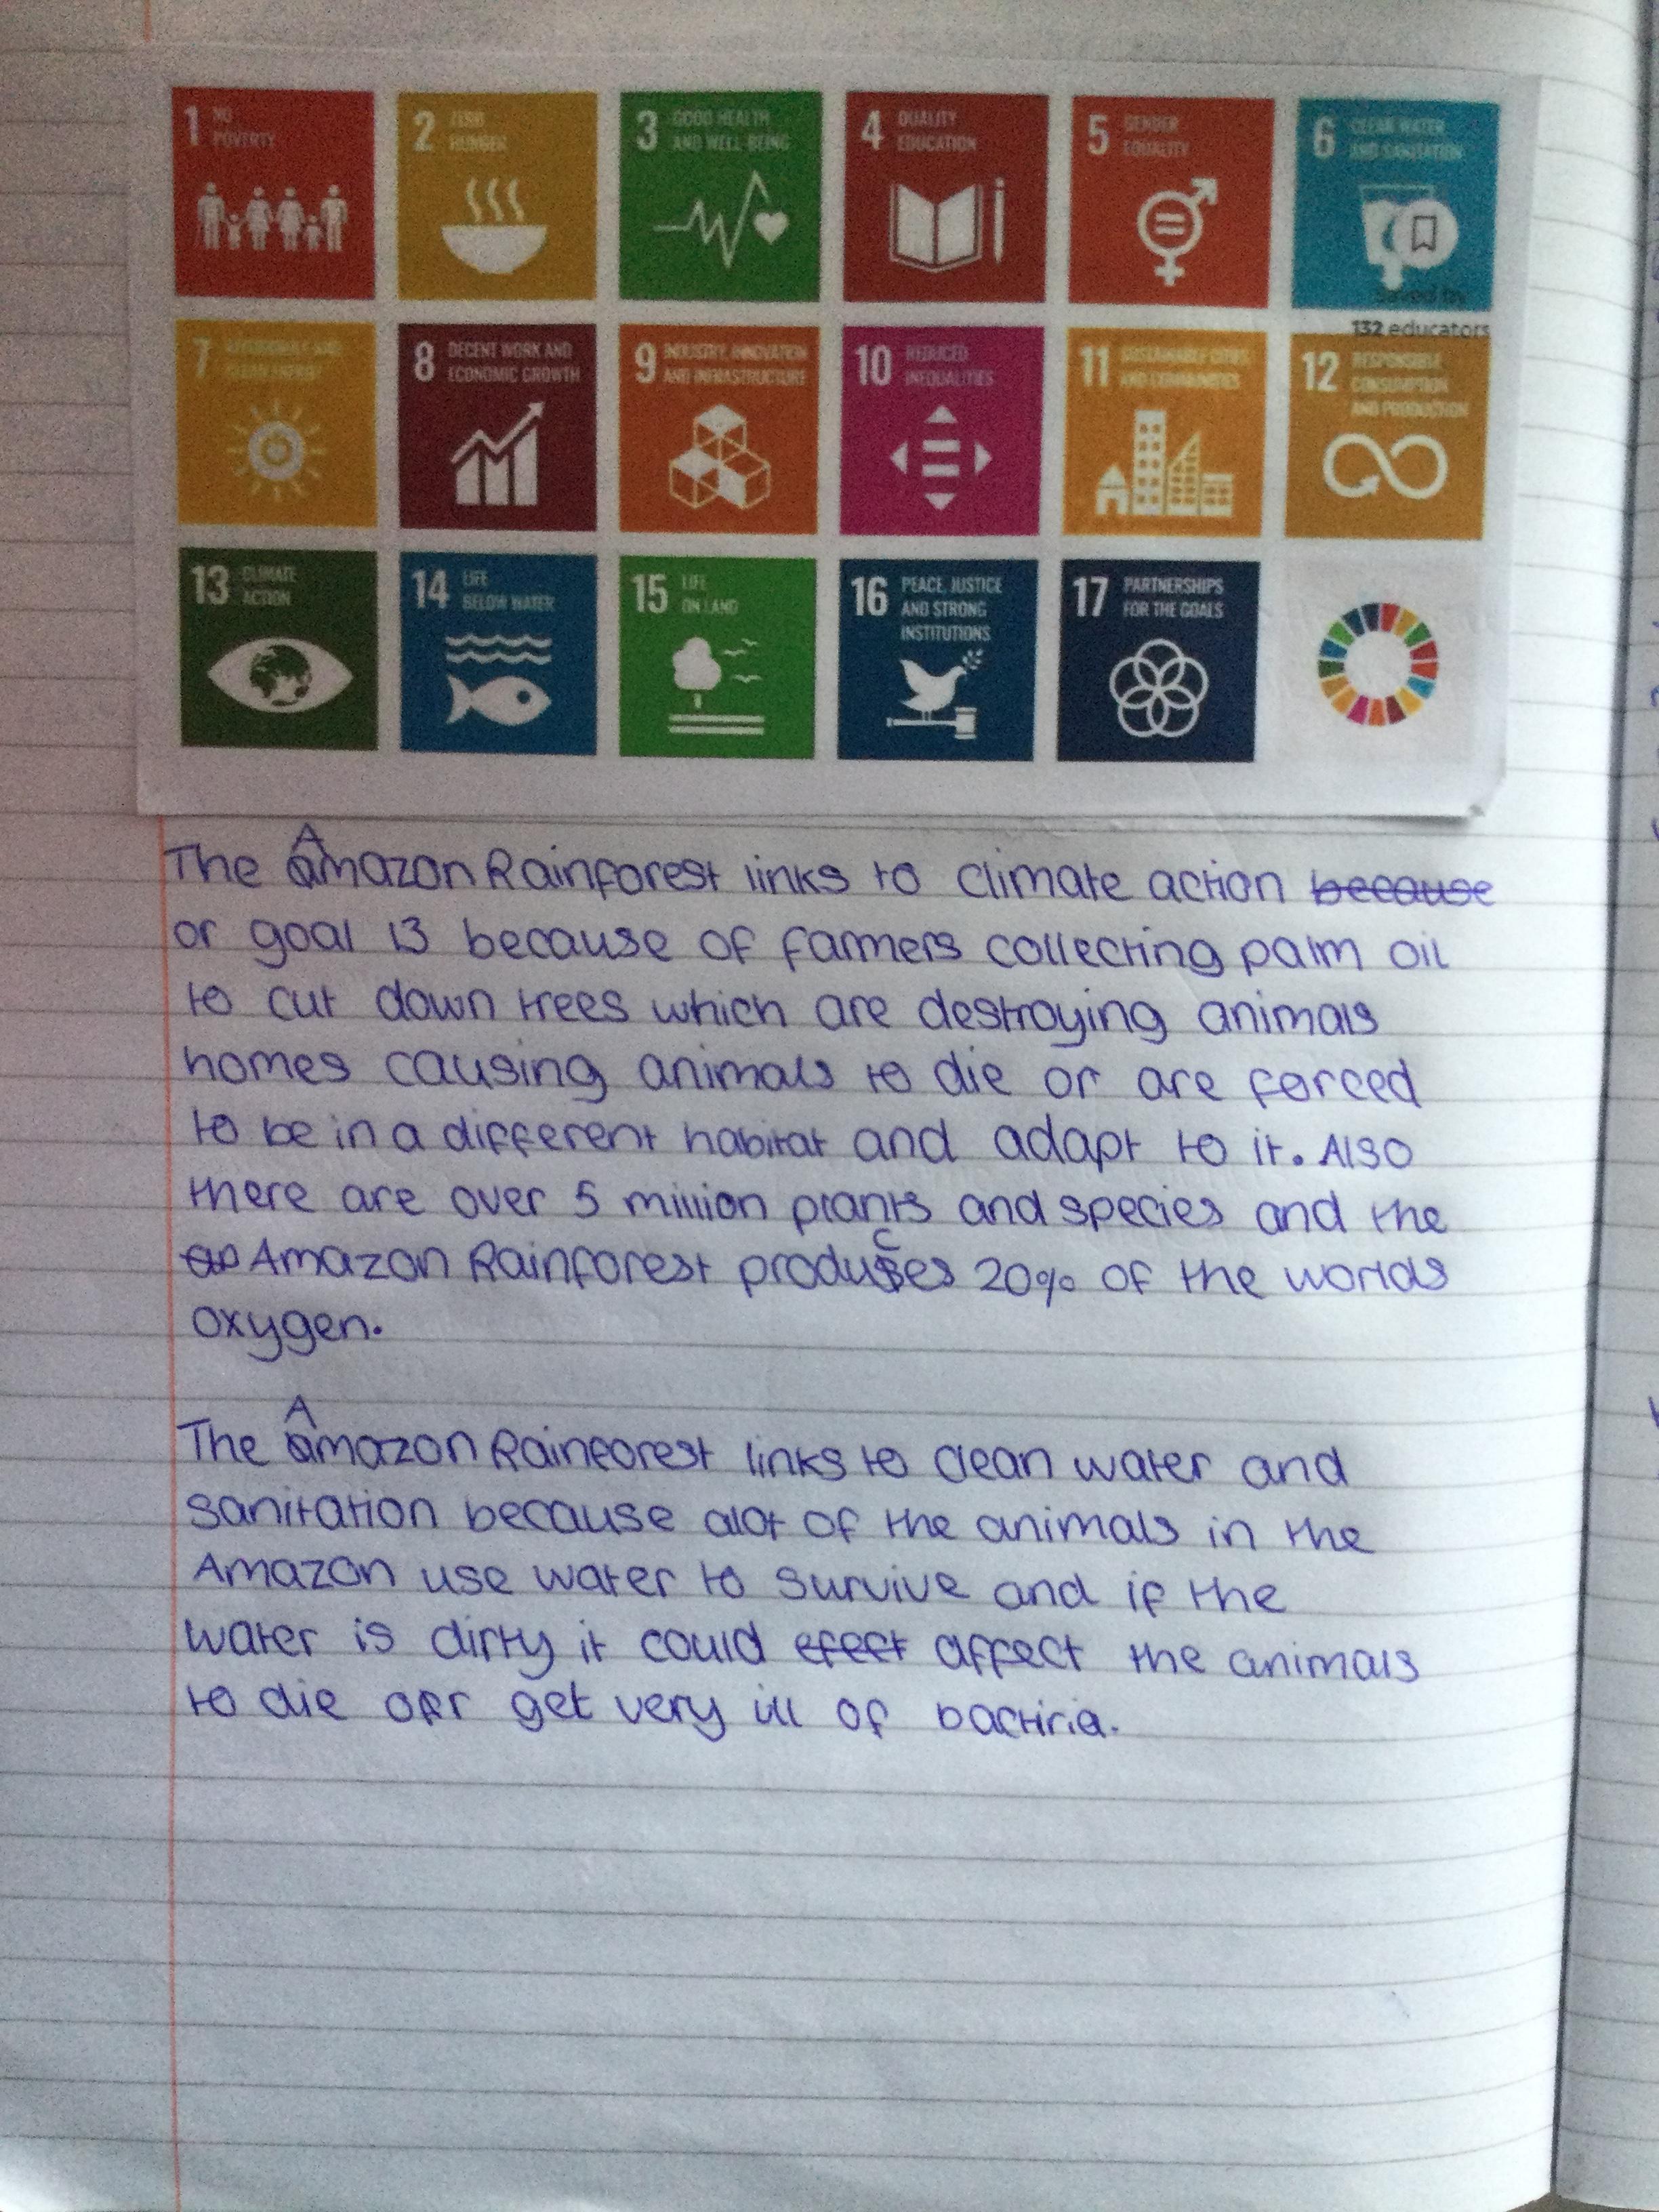 1 NO POVERTY
2 ZERO HUNGER
3 GOOD HEALTH AND WELL-BEING
4 QUALITY EDUCATION
5 GENDER EQUALITY
6 CLEAN WATER AND SANITATION
Saved by
132 educators
7 AFFORDABLE AND CLEAN ENERGY
8 DECENT WORK AND ECONOMIC GROWTH
9 INDUSTRY, INNOVATION AND INFRASTRUCTURE
10 REDUCED INEQUALITIES
11 SUSTAINABLE CITIES AND COMMUNITIES
12 RESPONSIBLE CONSUMPTION AND PRODUCTION
13 CLIMATE ACTION
14 LIFE BELOW WATER
15 LIFE ON LAND
16 PEACE, JUSTICE AND STRONG INSTITUTIONS
17 PARTNERSHIPS FOR THE GOALS
The Amazon Rainforest links to climate action because
or goal 13 because of farmers collecting palm oil
to cut down trees which are destroying animals
homes causing animals to die or are forced
to be in a different habitat and adapt to it. Also
there are over 5 million plants and species and the
Amazon Rainforest produces 20% of the worlds
oxygen.
The Amazon Rainforest links to clean water and
sanitation because alot of the animals in the
Amazon use water to survive and if the
water is dirty it could efect affect the animals
to die or get very ill of bactiria.